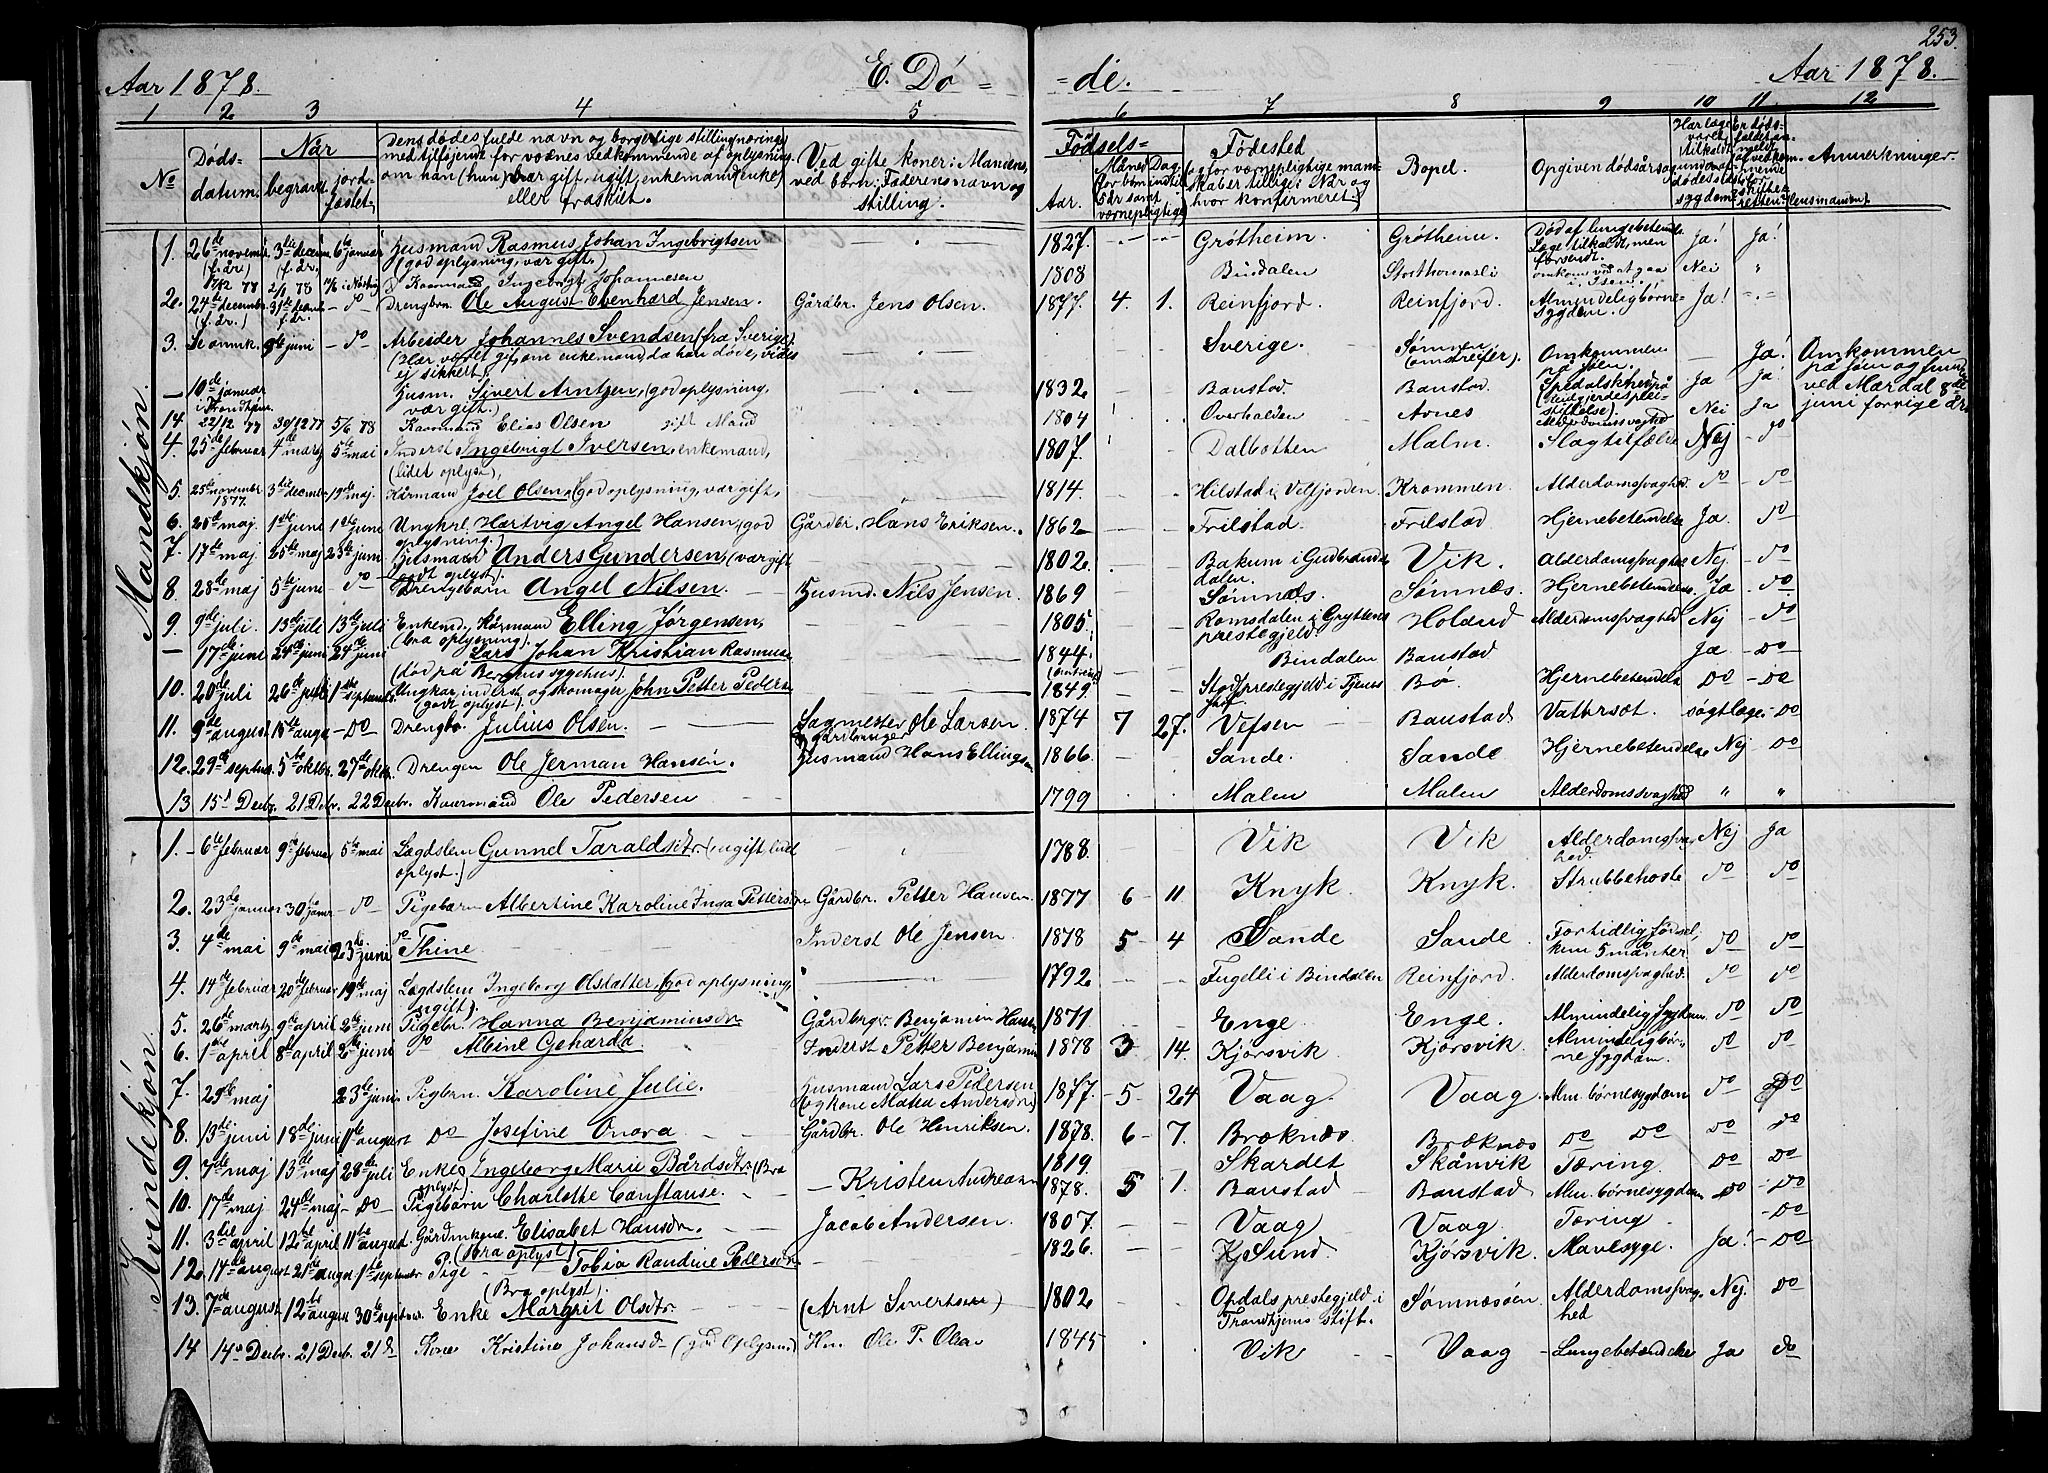 253.
Aar 1878. E. Dö-
=de. Aar 1878.
1 2 3 4 5 6 7 8 9 10 11 12
No Dödsdatum. Når begravet jordfæstet. Den dødes fulde navn og borgerlige stilling næring med tilføiende for voxnes vedkommende af oplysning om han (hun) var gift, ugift, enkemand (enke) eller fraskilt. Ved gifte koner: Mandens, ved børn: Faderens navn og stilling. Fødsels- Aar. Måned Dag Fødested Bopel. Opgiven dødsårsag Anmerkninger.
Mandkjøn.
1. 26de novembr. (f. år.) 3die decembr. (f. år.) 6te januar Husmand Rasmus Johan Ingebrigtsen (god oplysning, var gift.) 1827. Gröttheim. Grötheim. Död af lungebetendelse Læge tilkaldt, men forsendt. Ja! Ja!
17/12 77 2/1 78 Kaarmand Ingebrigt Johannesen 1808 Bindalen Storthomasli omkom ved at gaa i Isen Nei "
2. 24de december (f. år.) 31te decembr. f. år. - do - Drengbrn. Ole August Edvnhard Jensen. Gårdbr. Jens Olsen. 1877. 4. 1. Reinfjord. Reinfjord. Almindelig børnesygdom. Ja!
3. Se anmk. 9de juni - do - Arbeider Johannes Svendsen (fra Sverige) (Har været gift, om enkemand da han døde, vides ej sikkert.) Sverige. Sømnes (omstreifer). Omkommen på sjøen. Ja! Omkommen på sjøen og funden ved Mærdal 8de juni forrige år
- 10de januar i Trondhjem. Husm. Sivert Arntzen, (god oplysning, var gift.) 1832 Baustad. Baustad. Spedalskhed på (Reitgjerdes pleiestiftelse). Ja Ja!
14 22/12 77 30/12 77 5/6 78 Kaarmand Elias Olsen gift Mand 1804 Overhalden Aunes Alderdomssvaghed Nei Ja
4. 25de februar 4de marts 5te mai Inderst Ingebrigt Iversen, enkemand, (lidet oplyst), 1807. Dalbotten Malm. Slagtilfælde Nej - do
5. 25de novembr 1877. 3die decembr 19de maj. Kårmand Joel Olsen, (god oplysning, var gift, 1814. Hilstad i Velfjorden. Krommen. Alderdomssvaghed. do - do
6. 25de maj. 1ste juni 1ste juni Ungkrl. Hartvig Angel Hansen, god oplysning.) Gårdbr. Hans Eriksen. 1862 Frilstad. Frilstad Hjernebetendelse Ja. - do
7. 17de maj 25de maj 23de juni Husmand Anders Gundersen, (var gift godt oplyst). 1802. Bakum i Gudbrandsdalen. Vik. Alderdomssvaghed Nej. - do
8. 28de maj 5te juni - do Drengebarn Angel Nilsen. Husmd. Nils Jensen. 1869 Sömnæs. Sömnæs. Hjernebetendelse. Ja - do
9. 9de juli. 13de juli 13de juli Enkemd., kårmand Elling Jörgensen, (bra oplysning). 1805. Romsdalen i Gryttens prestegjeld. Holand Alderdomssvaghed Nej - do
- 17de juni 24de juni 24de juni Lars Johan Kristian Rasmuss (död på Bergens sygehus). 1844. Bindalen Baustad Ja - do
10. 20de juli 26de juli 1ste septembr. Ungkar, inderst og skomager John Petter Peders (godt oplyst). 1849. Stod prestegjeld i Bö. Hjernebetendelse do - do
11. 9de august 16de aug - do - Drengbr. Julius Olsen. Sagmester Ole Larsen gårdbruger 1874 7 27. Vefsen Baustad Vatersot. søgt læge - do
12. 29de septbr. 5te oktbr. 27de oktbr. Drengen Ole Jerman Hansen. Husmand Hans Ellingsen 1866. Sande. Sande Hjernebetendelse Nej do
13. 15d Decbr. 21 Decbr. 22 Decbr. Kaarmand Ole Pedersen 1799 Malm Malm Alderdomssvaghed " "
Kvindekjön.
1. 6te februar 9de februar 5te mai Lægdslem Gunnel Taraldsdtr. (ugift, lidt oplyst.) 1788. Vik Vik Alderdomssvaghed. Nej Ja
2. 23de januar 30de janr. - do Pigebarn Albertine Karoline Inga Pettersdr Gårdbr. Petter Hansen. 1877 6 - 11 Knyk. Knyk. Strubbehoste do do
3. 4de mai 9de mai 23de juni do Thine Inderst Ole Jensen. 1878 5 - 4 Sande Sande. For tidlig födsel, kun 5 månter. do do
4. 14de februar 20de februar 19de maj Lægdslem Ingeborg Olsdatter (god oplysning, ugift). 1792. Fugelli i Bindalen Reinfjord. Alderdomssvaghed. do do
5. 26de marts 9de april 2den juni Pigebr. Hanna Benjaminsdr Gårdbrgr. Benjamin Hansen 1871 Enge. Enge. Almindelig sygdom. do do
6. 1ste april 8de april 2den juni do Albine Geharda. Inderst Petter Benjamin 1878 3 14. Kjörsvik. Kjörsvik. Almindelig börnesygdom. do do
7. 29de maj 23de juni. Pigbrn. Karoline Julie. Husmand Lars Pedersen (og kone Mata Andersdr.) 1877. 5 - 24 Vaag. Vaag. Alm. börnesygdom do Do
8. 13de juni 18de juni 11te august Do Josefine Onora Gårdbr. Ole Henriksen. 1878. 6 - 7. Bröknæs Bröknæs Do Do do do
9. 7de maj 13de maj 28de juli Enke Ingeborg Marie Bårdsdtr. (Bra oplyst) 1819. Skardet Skånvik Tæring. Do Do
10. 17de maj 24de maj - Do - Pigebarn Charlothe Constanse. - Kristen Andreasen 1878. 5 1. Baustad Baustad Alm. börnesygdom - do - do
11. 3die april 12te april 11te august. Gårdmkone. Elisabet Hansdr. (Bra oplyst) Jacob Andersen. 1807. Vaag Vaag. Tæring. - Do
12. 14de august 21de august 1ste septembr. Pige - Tobia Randine Pedersdr. (Bra oplyst). 1826. Kj Sund. Kjörsvik. Mavesyge. Ja! - Do
13. 7de august 12te august 30te septbr. Enke Margrit Olsdtr. (Arnt Sivertsen) 1802 Opdals prestegjeld i Trondhjems stift. Sömnesöen. Alderdomssvaghed Nej. Do
14 14de Decbr. 21 Decb. 21 D Kone Kristine Johansd - (god oplysning) Hm. Ole P. Olsen 1845 Vik Vaag - Lungebetændelse Ja do